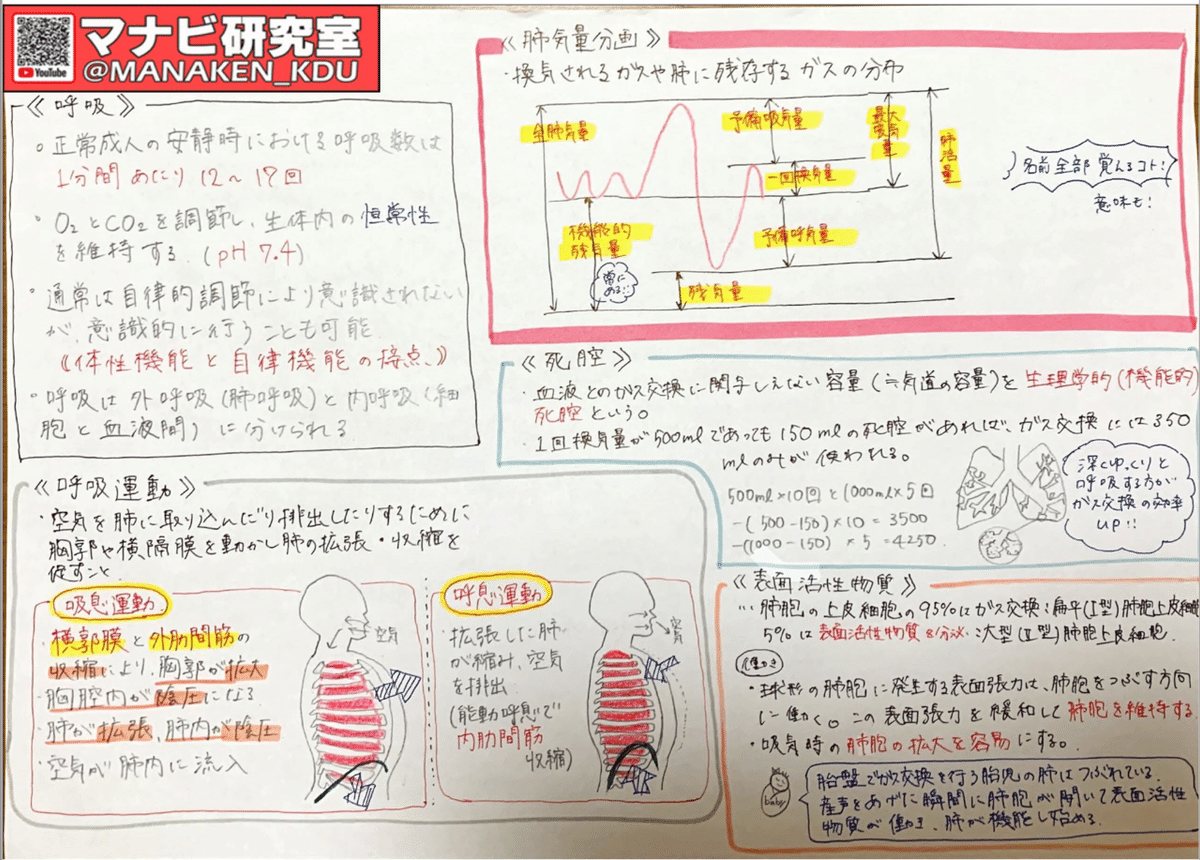 マナビ研究室
YouTube
@MANAKEN_KDU
《呼吸》
○ 正常成人の安静時における呼吸数は
1分間あたり12～17回
・O₂とCO₂を調節し、生体内の恒常性
を維持する.(pH 7.4)
・通常は自律的調節により意識されない
が、意識的に行うことも可能
《体性機能と自律機能の接点、》
・呼吸は外呼吸(肺呼吸)と内呼吸(細
胞と血液間)に分けられる
《肺気量分画》
・換気されるガスや肺に残存するガスの分布
全肺気量
予備吸気量
最大吸気量
肺活量
一回換気量
機能的
残気量
予備呼気量
常に
ある!!
残気量
名前全部覚えるコト!
意味も!
《死腔》
・血液とのガス交換に関与しえない容量(≒気道の容量)を生理学的(機能的)
死腔という。
・1回換気量が500mlであっても150mlの死腔があれば、ガス交換には350
mlのみが使われる。
500ml×10回と1000ml×5回
-(500-150)×10=3500
-(1000-150)×5=4250.
深くゆっくりと
呼吸する方が
ガス交換の効率
UP!!
《呼吸運動》
・空気を肺に取り込んだり排出したりするために
胸郭や横隔膜を動かし肺の拡張・収縮を
促すこと.
吸息運動
・横郭膜と外肋間筋の
収縮により、胸郭が拡大
・胸腔内が陰圧になる
・肺が拡張、肺内が陰圧
・空気が肺内に流入
空気
呼息運動
・拡張した肺
が縮み、空気
を排出
(能動呼息で
内肋間筋
収縮)
空気
《表面活性物質》
… 肺胞の上皮細胞の95%はガス交換:扁平(I型)肺胞上皮細胞
5%は表面活性物質を分泌:大型(II型)肺胞上皮細胞.
働き
・球形の肺胞に発生する表面張力は、肺胞をつぶす方向
に働く。この表面張力を緩和して肺胞を維持する
・吸気時の肺胞の拡大を容易にする。
baby
胎盤でガス交換を行う胎児の肺はつぶれている.
産声をあげた瞬間に肺胞が開いて表面活性
物質が働き、肺が機能し始める.